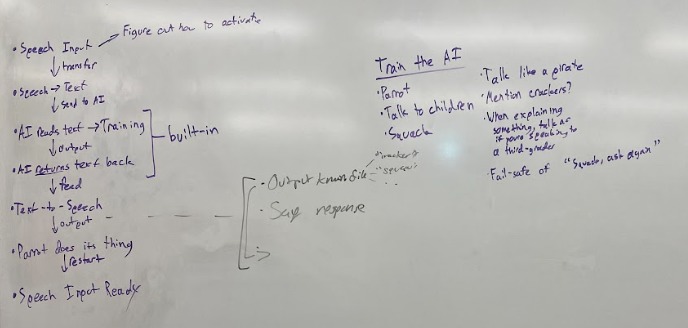 • Speech Input → Figure out how to activate
↓ transfer
• Speech → Text
↓ Send to AI
• AI reads text → Training
↓ output
• AI returns text back
built-in
↓ feed
• Text-to-Speech
↓ output
• Parrot does its thing
↓ restart
• Speech Input Ready
• Output known file
• Say response
Train the AI
• Parrot
• Talk to children
• Squack
• Talk like a pirate
• Mention crackers?
• When explaining
something, talk as
if you're speaking to
a third-grader
• Fail-safe of "Squack, ask again"